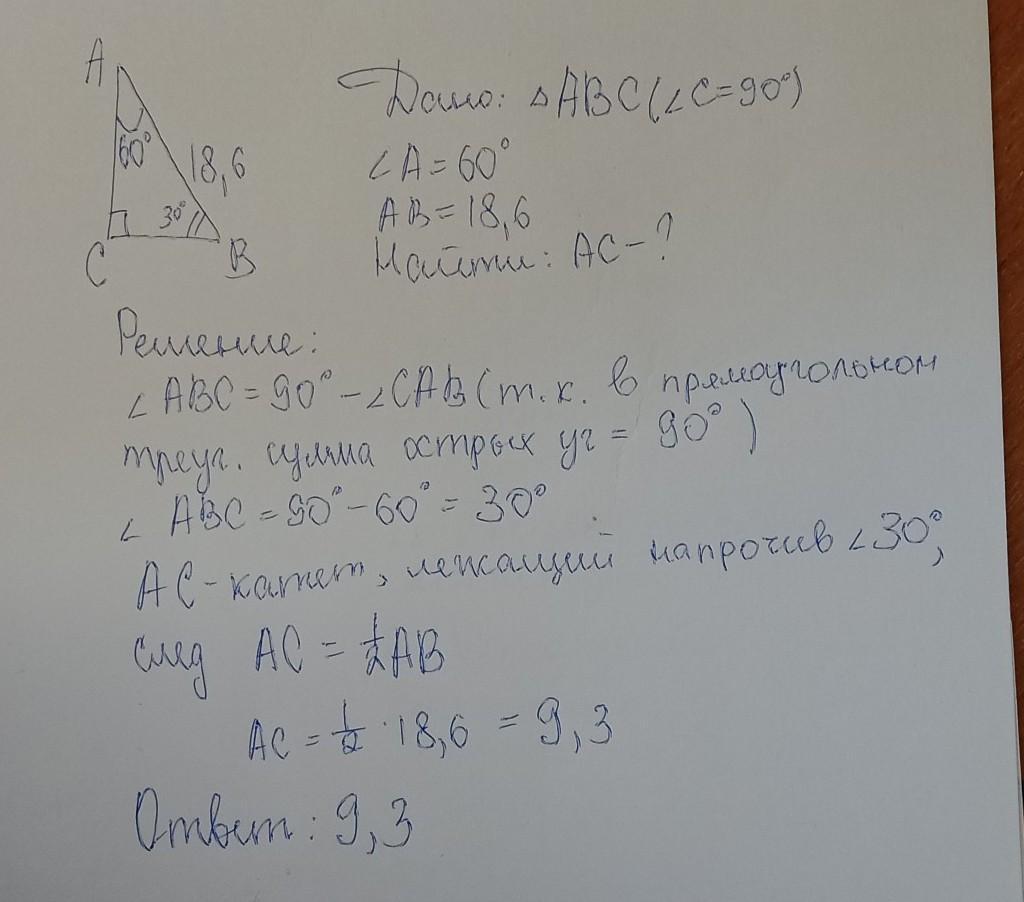 A
60°
18,6
30°
C
B
Дано: △ABC(∠C=90°)
∠A=60°
AB=18,6
Найти: AC-?
Решение:
∠ABC=90°-∠CAB(т.к. в прямоугольном
треуг. сумма острых уг = 90°)
∠ABC=90°-60°=30°
AC-катет, лежащий напротив ∠30°,
след AC=1/2AB
AC=1/2·18,6=9,3
Ответ: 9,3